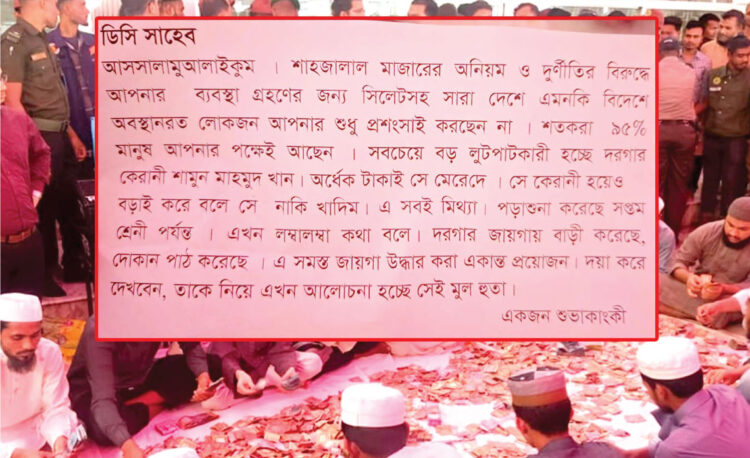 ডিসি সাহেব
আসসালামুআলাইকুম । শাহজালাল মাজারের অনিয়ম ও দুর্ণীতির বিরুদ্ধে
আপনার ব্যবস্থা গ্রহণের জন্য সিলেটসহ সারা দেশে এমনকি বিদেশে
অবস্থানরত লোকজন আপনার শুধু প্রশংসাই করছেন না । শতকরা ৯৫%
মানুষ আপনার পক্ষেই আছেন । সবচেয়ে বড় লুটপাটকারী হচ্ছে দরগার
কেরানী শামুন মাহমুদ খান। অর্ধেক টাকাই সে মেরেদে । সে কেরানী হয়েও
বড়াই করে বলে সে নাকি খাদিম। এ সবই মিথ্যা। পড়াশুনা করেছে সপ্তম
শ্রেনী পর্যন্ত । এখন লম্বালম্বা কথা বলে। দরগার জায়গায় বাড়ী করেছে,
দোকান পাঠ করেছে । এ সমস্ত জায়গা উদ্ধার করা একান্ত প্রয়োজন। দয়া করে
দেখবেন, তাকে নিয়ে এখন আলোচনা হচ্ছে সেই মুল হুতা।
একজন শুভাকাংকী